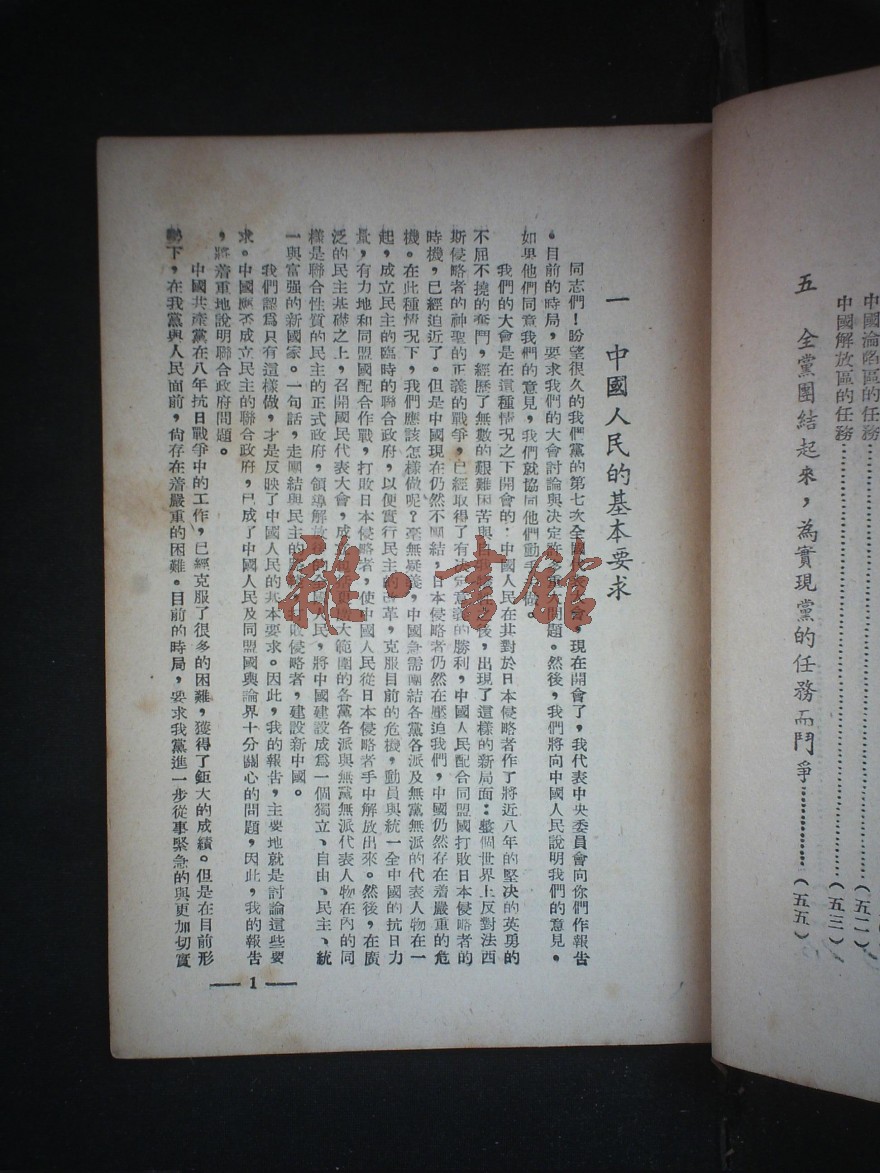 中國淪陷區的任務……………………(五二)
中國解放區的任務……………………(五三)
五　全黨團結起來，為實現黨的任務而鬥爭…………(五五)
一　中國人民的基本要求
同志們！盼望很久的我們黨的第七次全國代表大會，現在開會了，我代表中央委員會向你們作報告
。目前的時局，要求我們的大會討論與決定許多重大問題。然後，我們將向中國人民說明我們的意見。
如果他們同意我們的意見，我們就協同他們動手去做。
我們的大會是在這種情况之下開會的：中國人民在其對於日本侵略者作了將近八年的堅决的英勇的
不屈不撓的奮鬥，經歷了無數的艱難困苦與自我犧牲之後，出現了這樣的新局面：整個世界上反對法西
斯侵略者的神聖的正義的戰爭，已經取得了有決定意義的勝利，中國人民配合同盟國打敗日本侵略者的
時機，已經迫近了。但是中國現在仍然不團結，日本侵略者仍然在壓迫我們，中國仍然存在着嚴重的危
機。在此種情况下，我們應該怎樣做呢？毫無疑義，中國急需團結各黨各派及無黨無派的代表人物在一
起，成立民主的臨時的聯合政府，以便實行民主的改革，克服目前的危機，動員與統一全中國的抗日力
量，有力地和同盟國配合作戰，打敗日本侵略者，使中國人民從日本侵略者手中解放出來。然後，在廣
泛的民主基礎之上，召開國民代表大會，成立包括更廣大範圍的各黨各派與無黨無派代表人物在內的同
樣是聯合性質的民主的正式政府，領導解放後的全國人民，將中國建設成爲一個獨立、自由、民主、統
一與富强的新國家。一句話，走團結與民主的路線，打敗侵略者，建設新中國。
我們認爲只有這樣做，才是反映了中國人民的基本要求。因此，我的報告，主要地就是討論這些要
求。中國應否成立民主的聯合政府，已成了中國人民及同盟國輿論界十分關心的問題，因此，我的報告
，將着重地說明聯合政府問題。
中國共產黨在八年抗日戰爭中的工作，已經克服了很多的困難，獲得了鉅大的成績。但是在目前形
勢下，在我黨與人民面前，尙存在着嚴重的困難。目前的時局，要求我黨進一步從事緊急的與更加切實
— 1 —
雜·書館